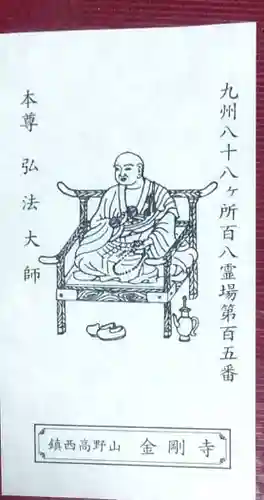 九州八十八ヶ所百八霊場第百五番
本尊 弘法大師
鎮西高野山 金剛寺